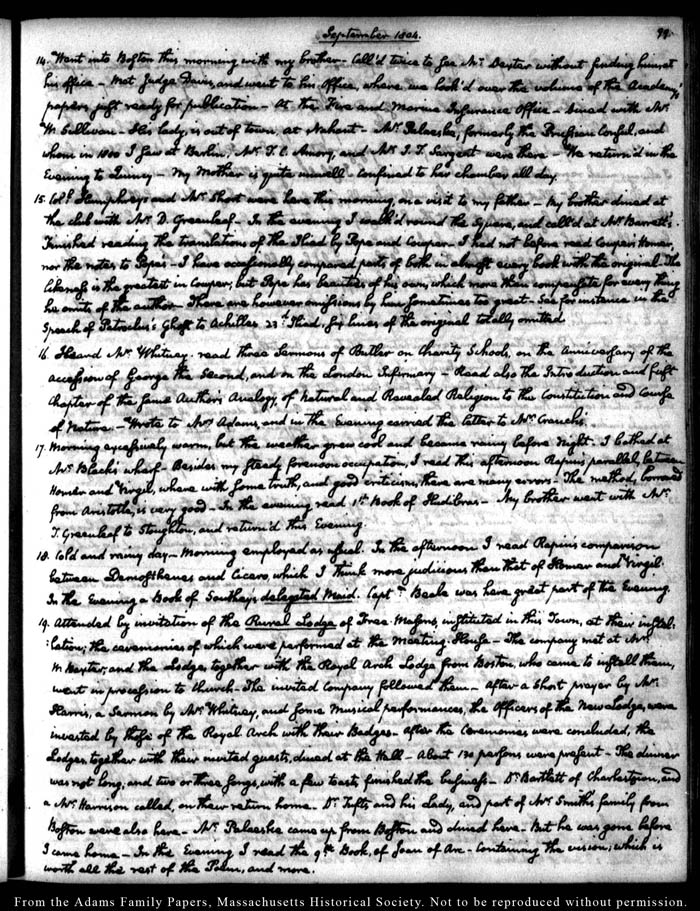 September 1804.
99.
14. Went into Boston this morning with my brother – Call'd twice to see Mr Dexter without finding him at
his office – Met Judge Davis, and went to his Office, where we look'd over the volume of the Academy
papers just ready for publication – At the Fire and Marine Insurance Office – Dined with Mr
W. Sullivan – His lady is out of town, at Nahant – Mr Palaeske, formerly the Prussian Consul, and
whom in 1800 I saw at Berlin, Mr T. C. Amory, and Mr D. Sargent were there – We return'd in the
Evening to Quincy – My Mother is quite unwell – Confined to her chamber all day.
15. Coll Humphreys and Mr Short were here this morning, on a visit to my father – My brother dined at
the club with Mr D. Greenleaf – In the evening I walk'd round the Square, and call'd at Mr Barrett's.
Finished reading the translations of the Iliad by Pope and Cowper – I had not before read Cowper's Homer,
nor the notes to Pope's – I have occasionally compared parts of both in almost every book with the original. The
likeness is the greatest in Cowper, but Pope has beauties of his own, which more than compensate for every thing
he omits of the author – There are however omissions by him sometimes too great – See for instance in the
Speech of Patroclus's Ghost to Achilles 23d Iliad, six lines of the original totally omitted.
16. Heard Mr Whitney read three Sermons of Butler on Charity Schools, on the anniversary of the
accession of George the Second, and on the London Infirmary – Read also the Introduction and first
Chapter of the same Author's Analogy, of Natural and Revealed Religion to the Constitution and Course
of Nature – Wrote to Mrs Adams, and in the Evening carried the letter to Mr Cranch's.
17. Morning excessively warm, but the weather grew cool and became rainy before Night. I bathed at
Mr Black's wharf – Besides my steady forenoon occupation, I read this afternoon Rapin's parallel, between
Homer and Virgil, where with some truth, and good criticism, there are many errors – The method, borrowed
from Aristotle, is very good – In the evening read 1st Book of Hudibras – My brother went with Mr
T. Greenleaf to Stoughton, and return'd this Evening.
18. Cold and rainy day – Morning employed as usual. In the afternoon I read Rapin's comparison
between Demosthenes and Cicero, which I think more judicious than that of Homer and Virgil.
In the Evening a Book of Southey's delegated Maid. Captn Beale was here great part of the Evening.
19. Attended by invitation of the Rural Lodge of Free Masons, instituted in this Town, at their instal-
:lation; the ceremonies of which were performed at the Meeting House – The company met at Mrs
W. Baxter; and the Lodge, together with the Royal Arch Lodge from Boston, who came to install them,
went in procession to Church – The invited Company followed them – After a short prayer by Mr
Harris, a Sermon by Mr Whitney, and some Musical performances, the Officers of the New Lodge, were
invested by those of the Royal Arch with their Badges – After the Ceremonies were concluded, the
Lodges, together with their invited guests, dined at the Hall – About 130 persons were present – The dinner
was not long, and two or three songs, with a few toasts, finished the business – Dr Bartlett of Charlestown, and
a Mr Harrison called, on their return home – Dr Tufts, and his Lady, and part of Mr Smith's family from
Boston were also here – Mr Palaeske came up from Boston and dined here – But he was gone before
I came home – In the Evening I read the 9th Book, of Joan of Arc – Containing the vision; which is
worth all the rest of the Poem, and more.
From the Adams Family Papers, Massachusetts Historical Society. Not to be reproduced without permission.